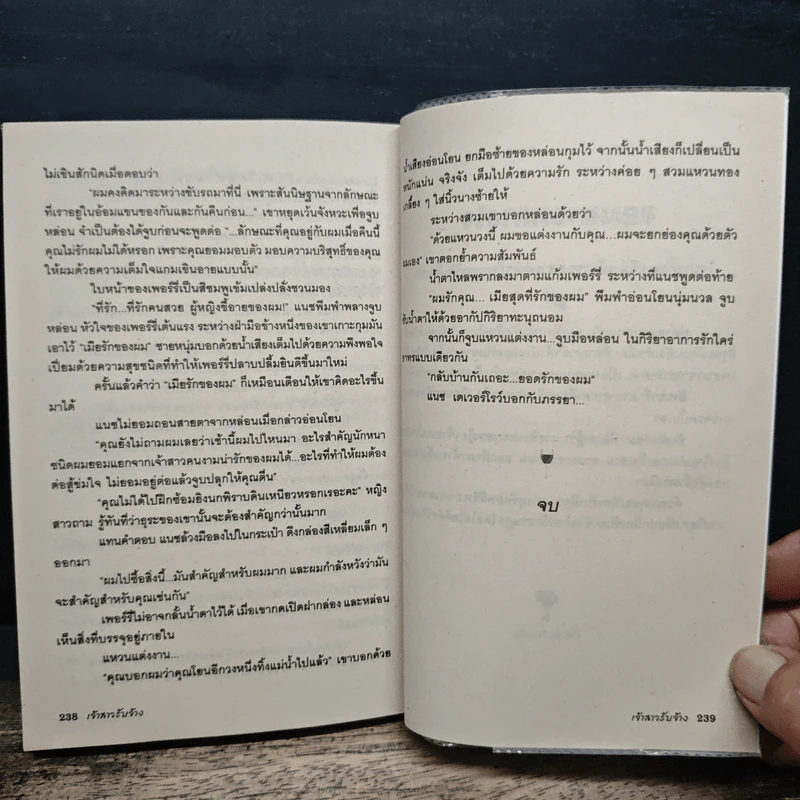 ไม่เขินสักนิดเมื่อตอบว่า
"ผมคงคิดมาระหว่างขับรถมาที่นี่ เพราะสันนิษฐานจากลักษณะ
ที่เราอยู่ในอ้อมแขนของกันและกันคืนก่อน..." เขาหยุดเว้นจังหวะเพื่อจูบ
หล่อน จำเป็นต้องได้จูบก่อนจะพูดต่อ "...ลักษณะที่คุณอยู่กับผมเมื่อคืนนี้
คุณไม่รักผมไม่ได้หรอก เพราะคุณยอมมอบตัว มอบความบริสุทธิ์ของคุณ
ให้ผมด้วยความเต็มใจแกมเขินอายแบบนั้น"
ใบหน้าของเพอร์รี่เป็นสีชมพูเข้มเปล่งปลั่งชวนมอง
"ที่รัก...ที่รักคนสวย ผู้หญิงขี้อายของผม!" แนชพึมพำพลางจูบ
หล่อน หัวใจของเพอร์รี่เต้นแรง ระหว่างฝ่ามือข้างหนึ่งของเขาเกาะกุมมัน
เอาไว้ "เมียรักของผม" ชายหนุ่มบอกด้วยน้ำเสียงเต็มไปด้วยความพึงพอใจ
เปี่ยมด้วยความสุขชนิดที่ทำให้เพอร์รี่ปลาบปลื้มยินดีขึ้นมาใหม่
ครั้นแล้วคำว่า "เมียรักของผม" ก็เหมือนเตือนให้เขาคิดอะไรขึ้น
มาได้
แนชไม่ยอมถอนสายตาจากหล่อนเมื่อกล่าวอ่อนโยน
"คุณยังไม่ถามผมเลยว่าเช้านี้ผมไปไหนมา อะไรสำคัญนักหนา
ชนิดผมยอมแยกจากเจ้าสาวคนงามน่ารักของผมได้...อะไรที่ทำให้ผมต้อง
ต่อสู้ข่มใจ ไม่ยอมอยู่ต่อแล้วจูบปลุกให้คุณตื่น"
"คุณไม่ได้ไปฝึกซ้อมยิงนกพิราบดินเหนียวหรอกเรอะคะ" หญิง
สาวถาม รู้ทันทีว่าธุระของเขานั้นจะต้องสำคัญกว่านั้นมาก
แทนคำตอบ แนชล้วงมือลงไปในกระเป๋า ดึงกล่องสี่เหลี่ยมเล็ก ๆ
ออกมา
"ผมไปซื้อสิ่งนี้...มันสำคัญสำหรับผมมาก และผมกำลังหวังว่ามัน
จะสำคัญสำหรับคุณเช่นกัน"
เพอร์รี่ไม่อาจกลั้นน้ำตาไว้ได้ เมื่อเขากดเปิดฝากล่อง และหล่อน
เห็นสิ่งที่บรรจุอยู่ภายใน
แหวนแต่งงาน...
"คุณบอกผมว่าคุณโยนอีกวงหนึ่งทิ้งแม่น้ำไปแล้ว" เขาบอกด้วย
238 เจ้าสาวรับจ้าง
น้ำเสียงอ่อนโยน ยกมือซ้ายของหล่อนกุมไว้ จากนั้นน้ำเสียงก็เปลี่ยนเป็น
หนักแน่น จริงจัง เต็มไปด้วยความรัก ระหว่างค่อย ๆ สวมแหวนทอง
เกลี้ยง ๆ ใส่นิ้วนางซ้ายให้
ระหว่างสวมเขาบอกหล่อนด้วยว่า
"ด้วยแหวนวงนี้ ผมขอแต่งงานกับคุณ...ผมจะยกย่องคุณด้วยตัว
ผมเอง" เขาตอกย้ำความสัมพันธ์
น้ำตาไหลพรากลงมาตามแก้มเพอร์รี่ ระหว่างที่แนชพูดต่อท้าย
"ผมรักคุณ... เมียสุดที่รักของผม" พึมพำอ่อนโยนนุ่มนวล จูบ
ซับน้ำตาให้ด้วยอากัปกิริยาทะนุถนอม
จากนั้นก็จูบแหวนแต่งงาน...จูบมือหล่อน ในกิริยาอาการรักใคร่
อาทรแบบเดียวกัน
"กลับบ้านกันเถอะ...ยอดรักของผม"
แนช เดเวอร์โรว์บอกกับภรรยา...
จบ
เจ้าสาวรับจ้าง 239